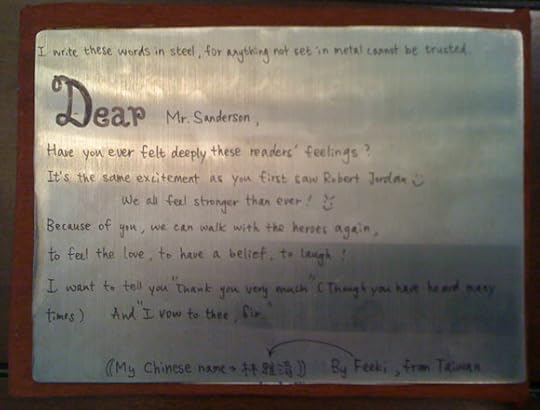 I write these words in steel, for anything not set in metal cannot be trusted.
Dear Mr. Sanderson,
Have you ever felt deeply these readers' feelings?
It's the same excitement as you first saw Robert Jordan
We all feel stronger than ever!
Because of you, we can walk with the heroes again,
to feel the love, to have a belief, to laugh!
I want to tell you "thank you very much" (Though you have heard many
times) And "I vow to thee, Sir."
((My Chinese name → 林雅)) By Feeki, from Taiwan